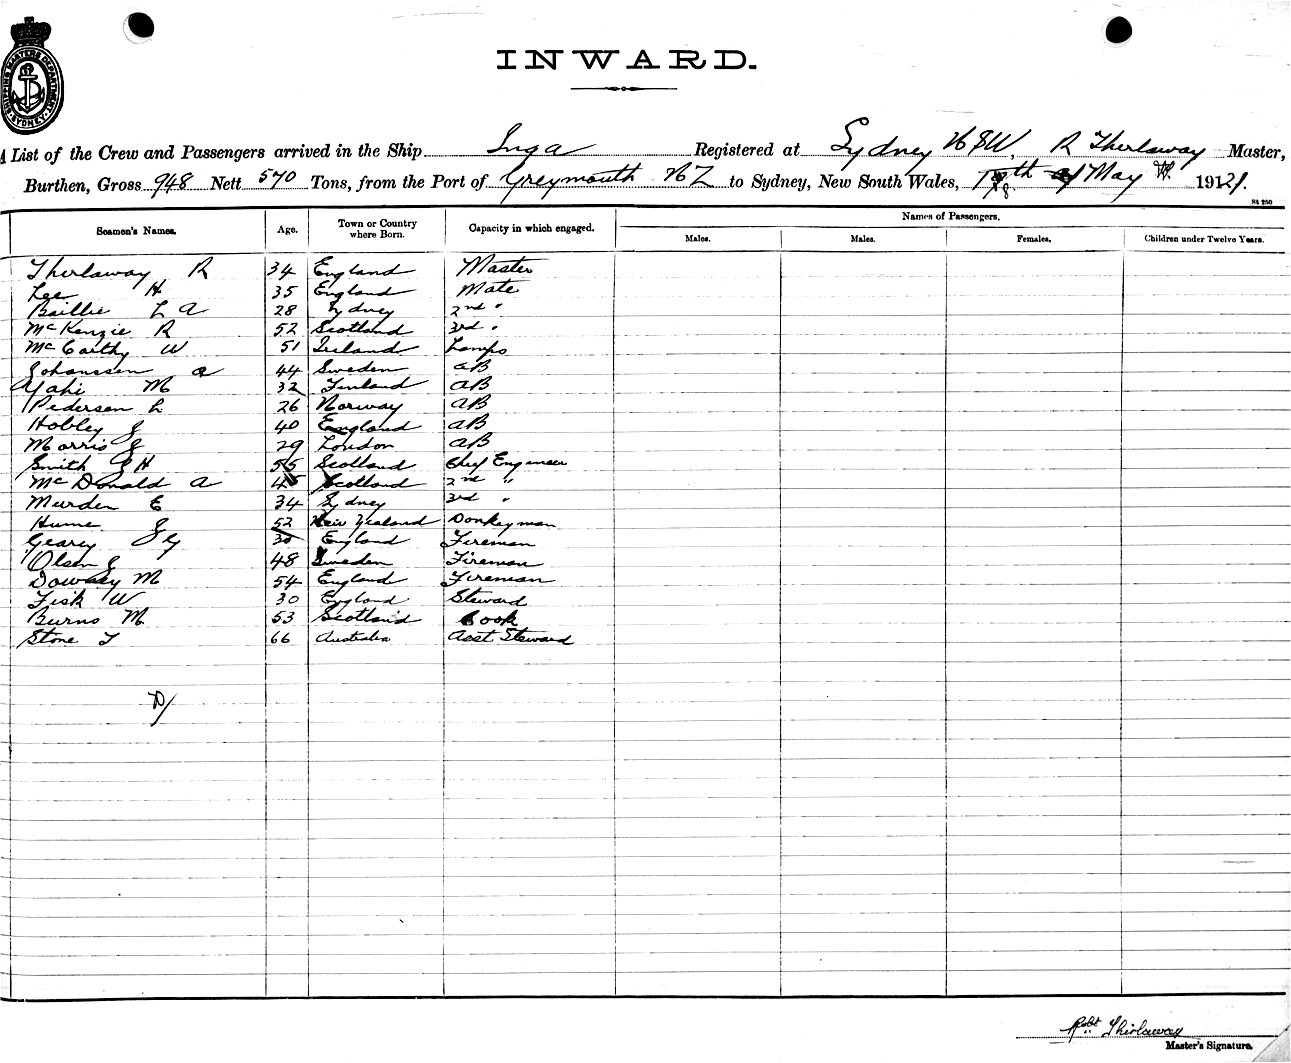 SHIPPING MASTERS DEPARTMENT SYDNEY
INWARD.
A List of the Crew and Passengers arrived in the Ship Inga Registered at Sydney NSW, R Thirlaway Master,
Burthen, Gross 948 Nett 570 Tons, from the Port of Greymouth NZ to Sydney, New South Wales, May 1921.
S3 250
Seamen's Names. Age. Town or Country where Born. Capacity in which engaged. Names of Passengers.
Males. Males. Females. Children under Twelve Years.
Thirlaway R 34 England Master
Lee H 35 England Mate
Baillie L A 28 Sydney 2nd "
McKenzie R 52 Scotland 3rd "
McCarthy W 51 Ireland Lamps
Johanssen A 44 Sweden AB
M 32 Finland AB
Pedersen L 26 Norway AB
Hobley J 40 England AB
Morris J 29 London AB
Smith J H 55 Scotland Chief Engineer
McDonald A 45 Scotland 2nd "
Murden E 34 Sydney 3rd "
Hume J 52 New Zealand Donkeyman
Geary J G 30 England Fireman
Olsen J 48 Sweden Fireman
Dowsey M 54 England Fireman
Fisk W 30 England Steward
Burns M 53 Scotland Cook
Stone T 66 Australia Asst Steward
Robt Thirlaway
Master's Signature.